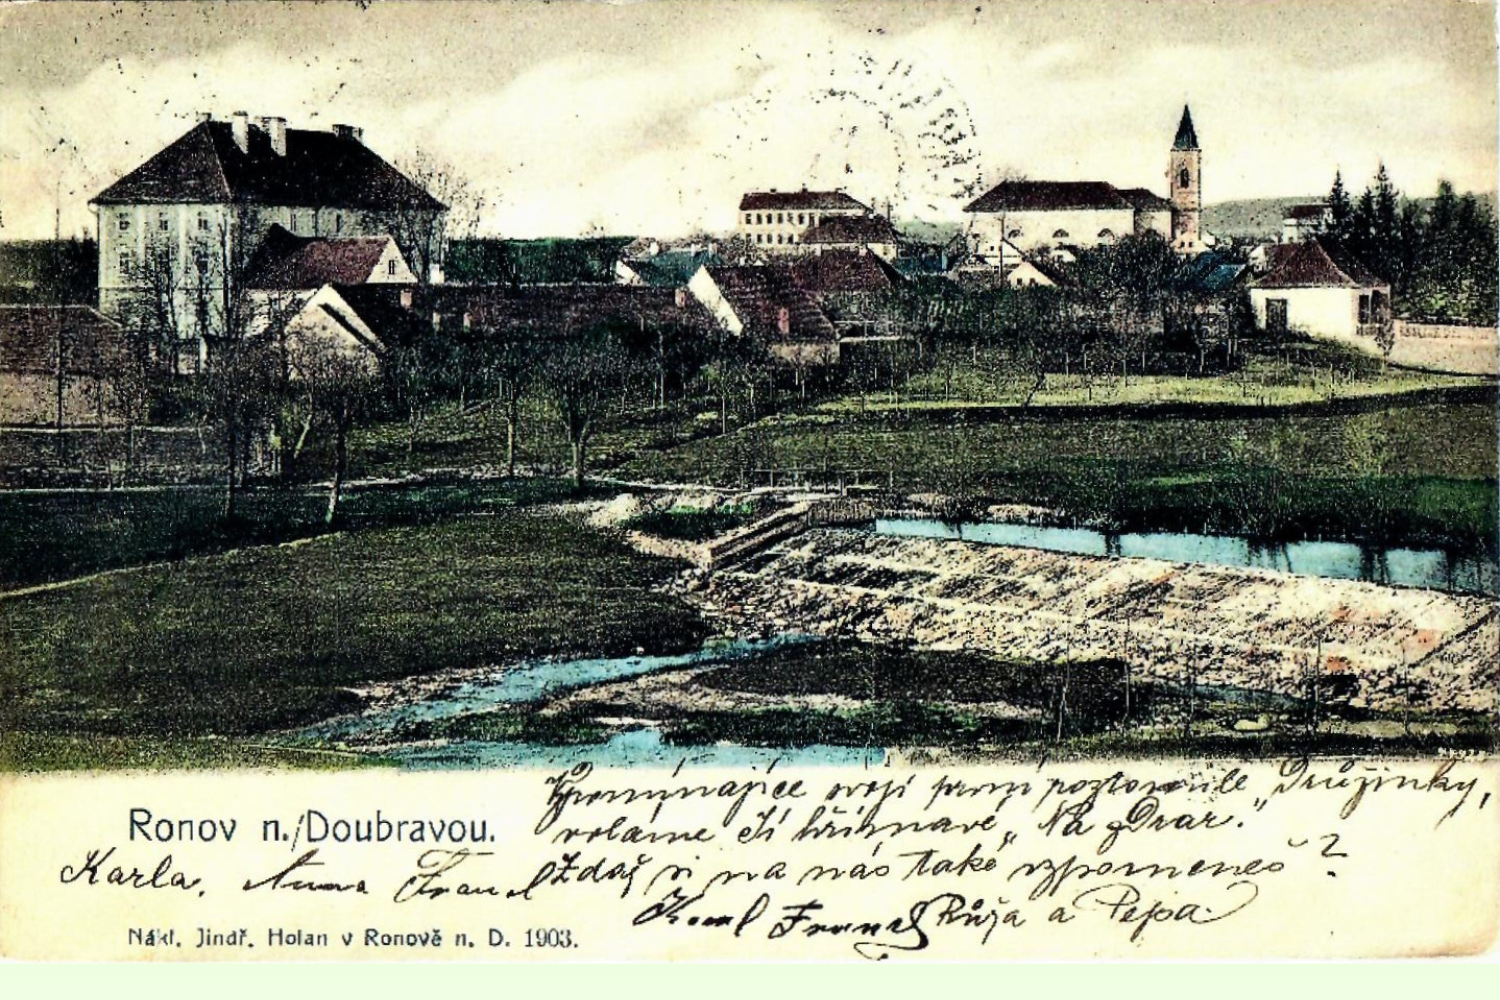 Vzpomínajíce svojí první roztomilé „Družinky,
voláme Jí hřímavě „Na zdar."
Zdaž si na nás také vzpomeneš?
Ronov n./Doubravou.
Karla, Anna Francl
Karel Francl Růža a Pepa
Nákl. Jindř. Holan v Ronově n. D. 1903.